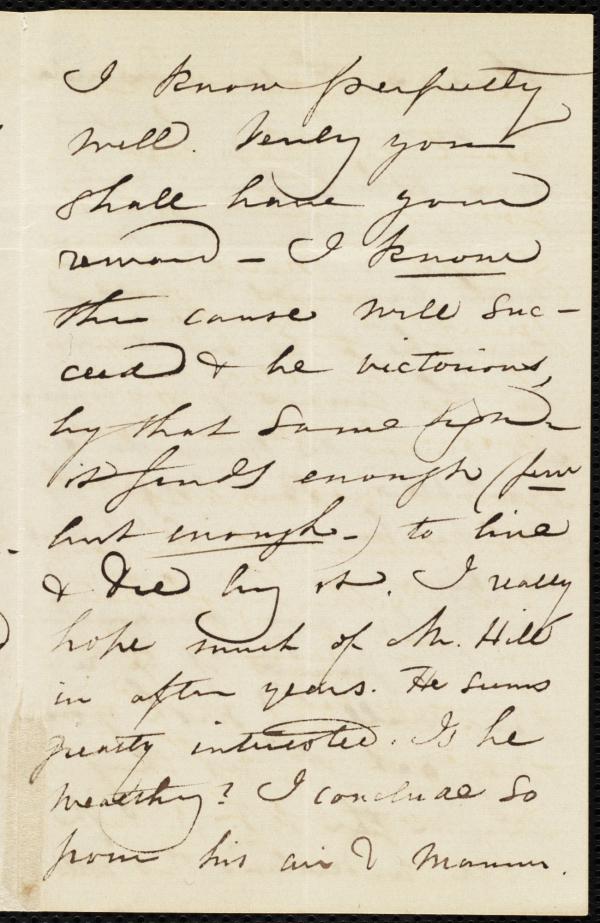 I know perfectly
well. Verily you
shall have your
reward – I know
the cause will suc-
ceed & be victorious,
by that same sign –
it finds enough (few
but enough –) to live
& die by it. I really
hope much of Mr. Hill
in after years. He seems
greatly interested. Is he
wealthy? I conclude so
from his air & manner.